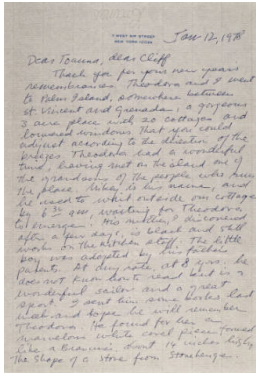 7 WEST 81ST STREET
NEW YORK 10024
Jan 12, 1978
Dear Joanna, dear Cliff
Thank you for your new years
remembrances. Theodora and I went
to Palm Island, somewhere between
St Vincent and Grenada: a gorgeous
3 acre place with 20 cottages and
louvered windows that you could
adjust according to the direction of the
breezes. Theodora had a wonderful
time, having such on the island one of
the grandsons of the people who run
the place. Mikey is his name, and
he used to wait outside our cottage
by 6:30 am, waiting for Theodora
to emerge. His mother, I discovered
after a few days, is black and still
works on the kitchen staff. The little
boy was adopted by his father's
parents. At any rate, at 8 yrs. he
does not know how to read but is a
wonderful sailor and a great
sport. I sent him some books last
week and hope he will remember
Theodora. He found for her a
marvelous white coral piece formed
like a Brancusi, about 14 inches high,
the shape of a stone from Stonehenge.